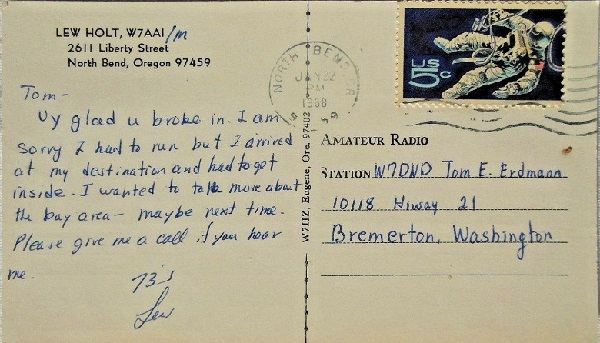 LEW HOLT, W7AAI/m
2611 Liberty Street
North Bend, Oregon 97459
Tom-
Vy glad u broke in. I am
sorry I had to run but I arrived
at my destination and had to get
inside. I wanted to talk more about
the bay area - maybe next time.
Please give me a call if you hear
me.
73's
Lew
W7HHZ, Eugene, Ore. 97402
NORTH BEND
JAN 22
PM
1968
US
5c
AMATEUR RADIO
STATION W7DND Tom E. Erdmann
10118 Hiway 21
Bremerton, Washington